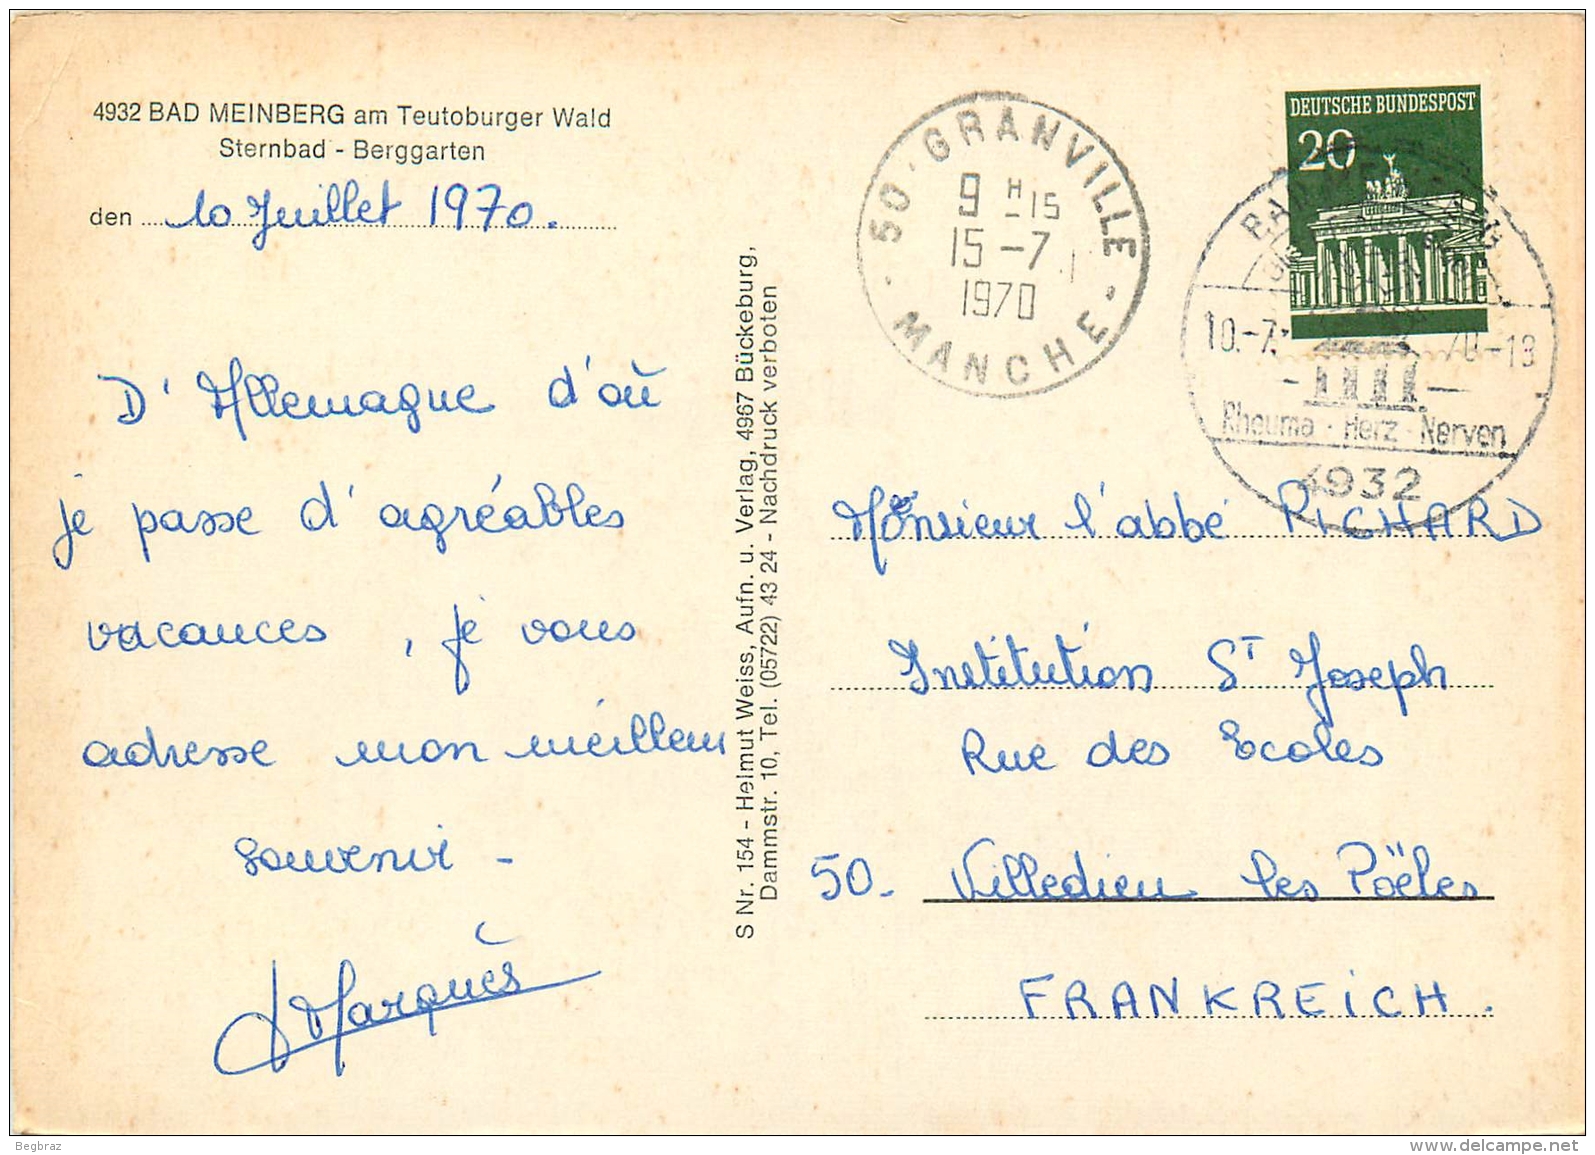 4932 BAD MEINBERG am Teutoburger Wald
Sternbad - Berggarten
den 10 Juillet 1970.
D'Allemagne d'où
je passe d'agréables
vacances, je vous
adresse mon meilleur
souvenir -
Marquès
S Nr. 154 - Helmut Weiss, Aufn. u. Verlag, 4967 Bückeburg,
Dammstr. 10, Tel. (05722) 43 24 - Nachdruck verboten
50 · GRANVILLE
9 H -15
15 -7
1970
- MANCHE -
DEUTSCHE BUNDESPOST
20
10.-7. 70-18
Rheuma · Herz · Nerven
4932
Monsieur l'abbé PICHARD
Institution St Joseph
Rue des Ecoles
50. Villedieu les Pöëles
FRANKREICH.
Begbraz
www.delcampe.net